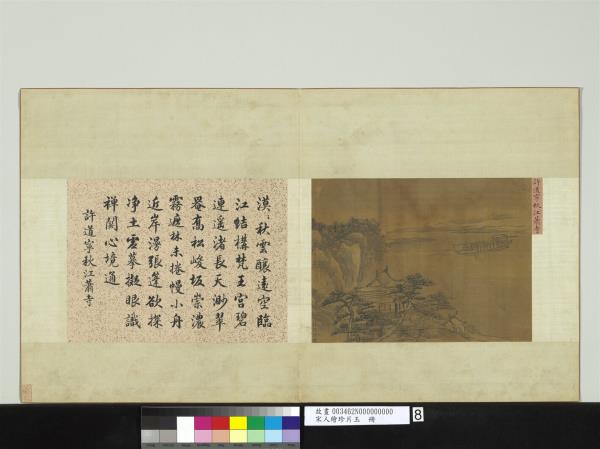 許道寧秋江蕭寺
漠々秋雲釀遠空臨
江結構梵王宮碧
連遥渚長天渺翠
罨高松峻坂崇濃
霧遮林未捲幔小舟
近岸漫張篷欲探
净土摹擬眼識
禅關心境通
許道寧秋江蕭寺
故畫 003462N000000000
宋人繪珍片玉 冊
8